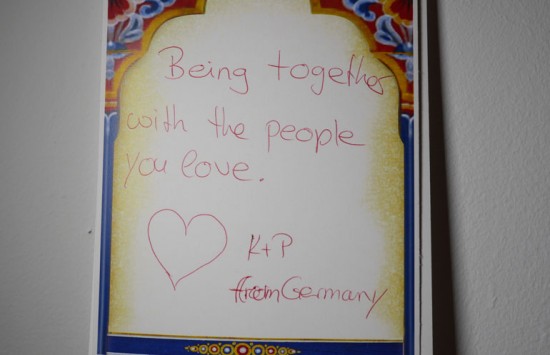 Being together
with the people
you love.
K+P
from Germany